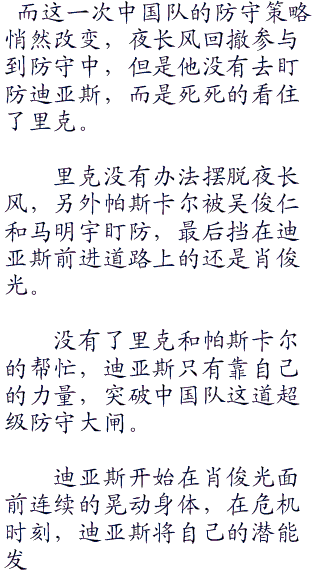 而这一次中国队的防守策略
悄然改变，夜长风回撤参与
到防守中，但是他没有去盯
防迪亚斯，而是死死的看住
了里克。
里克没有办法摆脱夜长
风，另外帕斯卡尔被吴俊仁
和马明宇盯防，最后挡在迪
亚斯前进道路上的还是肖俊
光。
没有了里克和帕斯卡尔
的帮忙，迪亚斯只有靠自己
的力量，突破中国队这道超
级防守大闸。
迪亚斯开始在肖俊光面
前连续的晃动身体，在危机
时刻，迪亚斯将自己的潜能
发